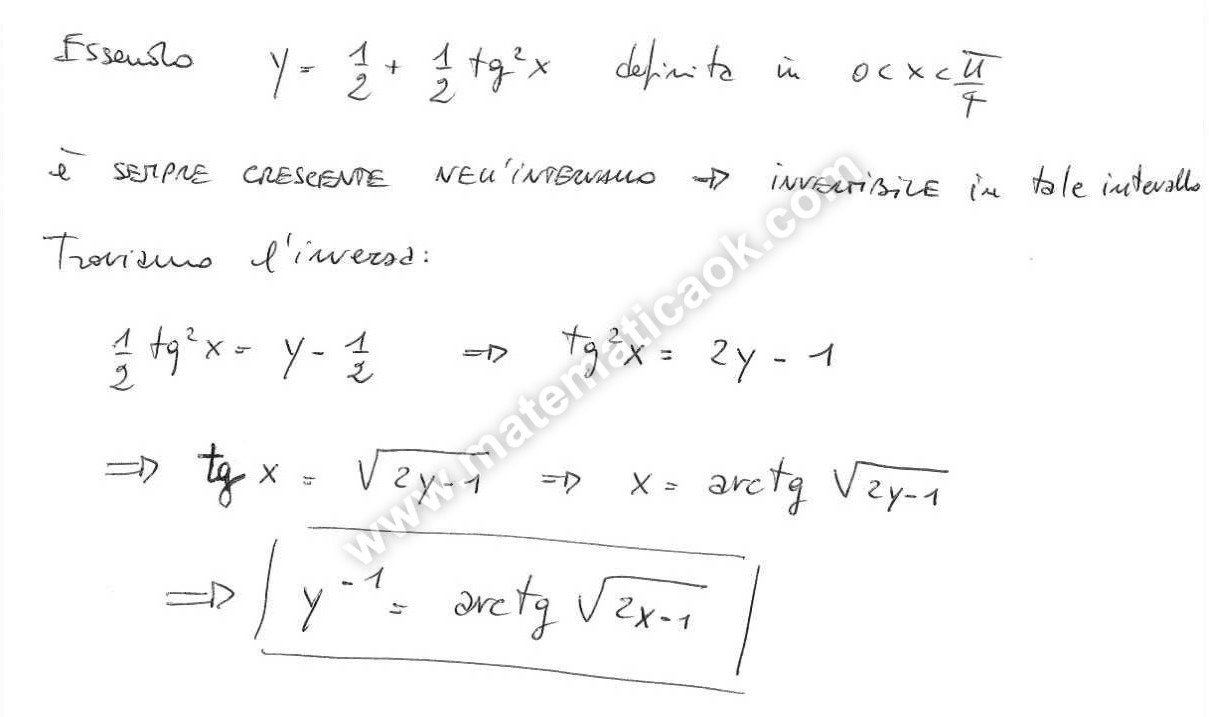 Essendo y = 1/2 + 1/2 tg²x definita in 0<x<π/4
è SEMPRE CRESCENTE NELL'INTERVALLO ⇒ INVERTIBILE in tale intervallo
Troviamo l'inversa:
1/2 tg²x = y - 1/2 ⇒ tg²x = 2y - 1
⇒ tg x = √(2y-1) ⇒ x = arctg √(2y-1)
⇒ y⁻¹ = arctg √(2x-1)
www.matematicaok.com